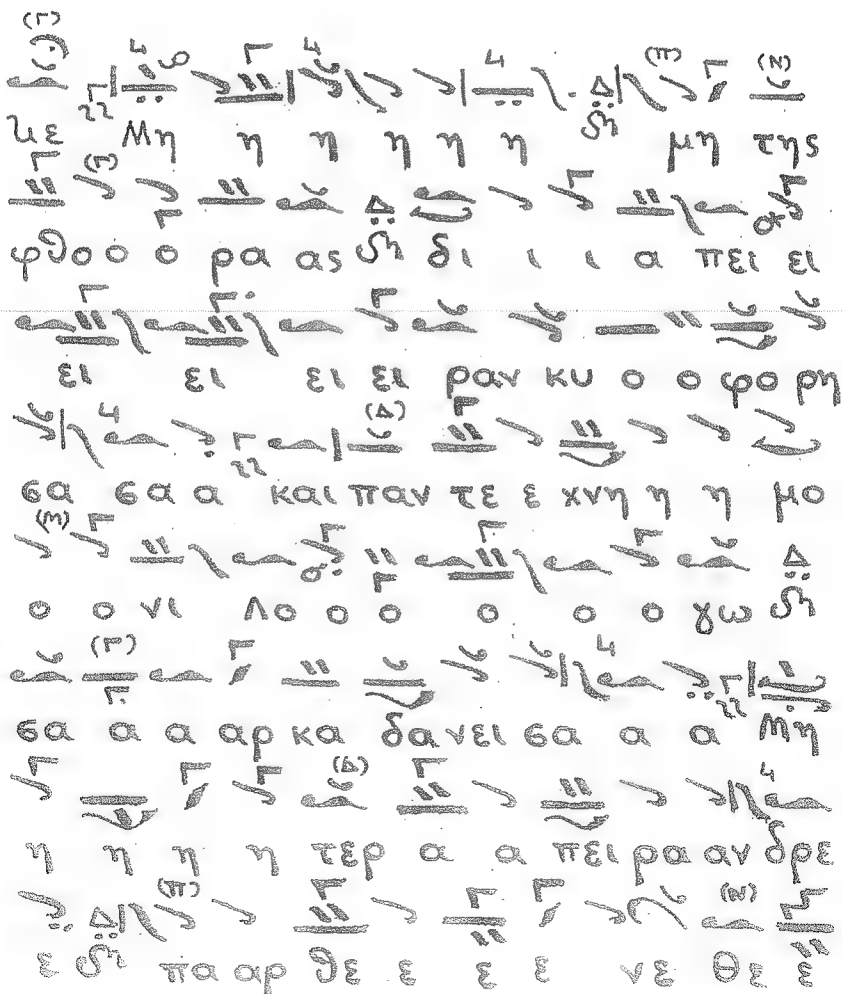 κε Μη η η η η η μη της
φθο ο ο ρα ας δι ι ι α πει ει
ει ει ει ει ραν κυ ο ο φο ρη
σα σα α και παν τε ε χνη η η μο
ο ο νι Λο ο ο ο ο ο γω
σα α α αρ κα δα νει σα α α Μη
η η η η τερ α α πει ρα αν δρε
ε πα αρ θε ε ε ε νε Θε ε